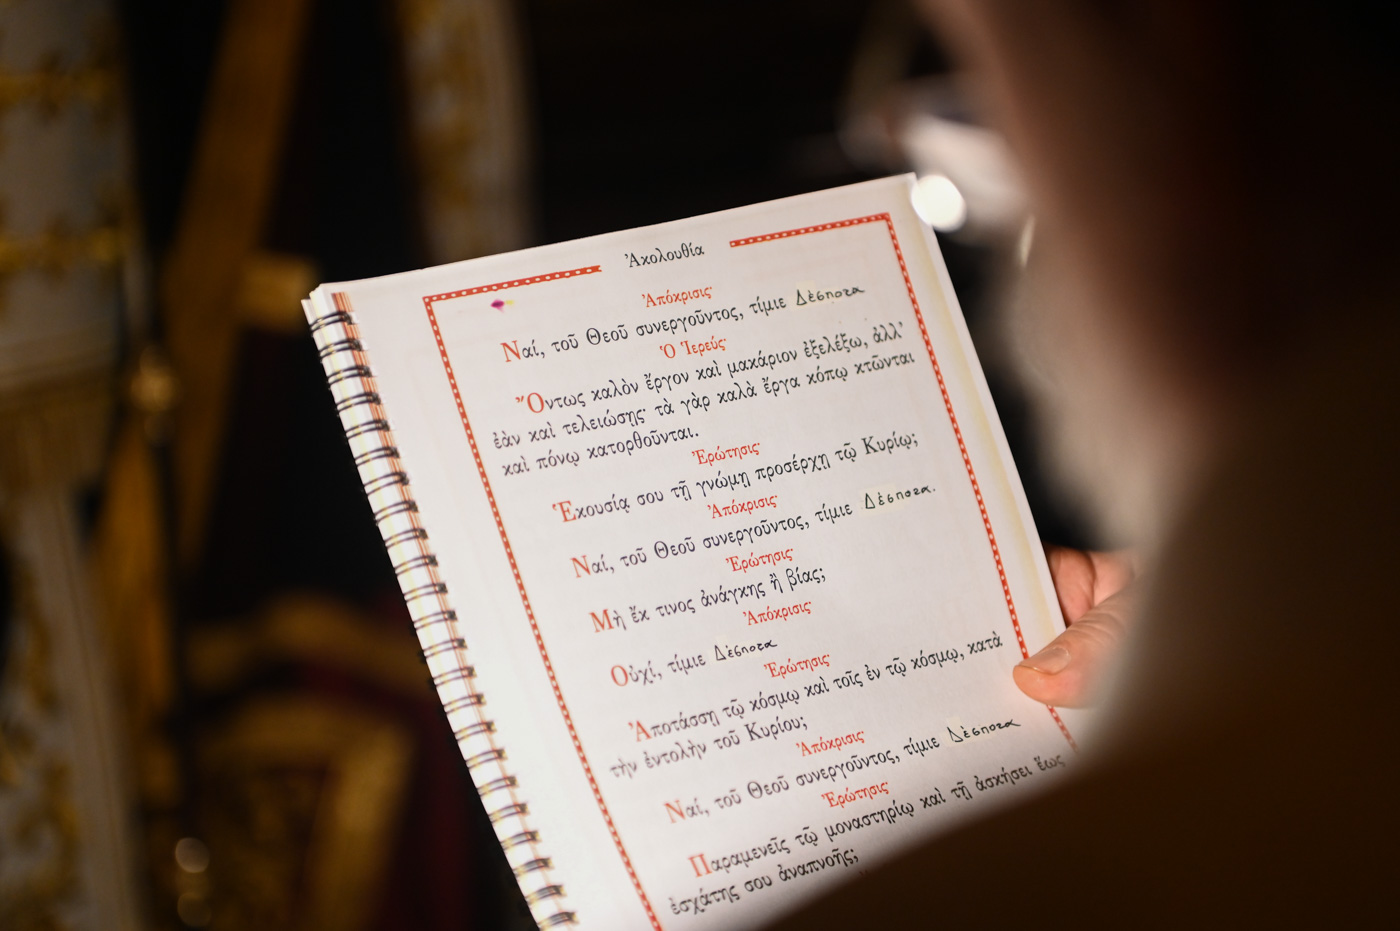 Ἀκολουθία
Ἀπόκρισις·
Ναί, τοῦ Θεοῦ συνεργοῦντος, τίμιε Δέσποτα
Ὁ Ἱερεύς·
Ὄντως καλὸν ἔργον καὶ μακάριον ἐξελέξω, ἀλλ’
ἐὰν καὶ τελειώσῃς· τὰ γὰρ καλὰ ἔργα κόπῳ κτῶνται
καὶ πόνῳ κατορθοῦνται.
Ἐρώτησις·
Ἑκουσίᾳ σου τῇ γνώμῃ προσέρχῃ τῷ Κυρίῳ;
Ἀπόκρισις·
Ναί, τοῦ Θεοῦ συνεργοῦντος, τίμιε Δέσποτα.
Ἐρώτησις·
Μὴ ἔκ τινος ἀνάγκης ἢ βίας;
Ἀπόκρισις·
Οὐχί, τίμιε Δέσποτα
Ἐρώτησις·
Ἀποτάσσῃ τῷ κόσμῳ καὶ τοῖς ἐν τῷ κόσμῳ, κατὰ
τὴν ἐντολὴν τοῦ Κυρίου;
Ἀπόκρισις·
Ναί, τοῦ Θεοῦ συνεργοῦντος, τίμιε Δέσποτα
Ἐρώτησις·
Παραμενεῖς τῷ μοναστηρίῳ καὶ τῇ ἀσκήσει ἕως
ἐσχάτης σου ἀναπνοῆς;